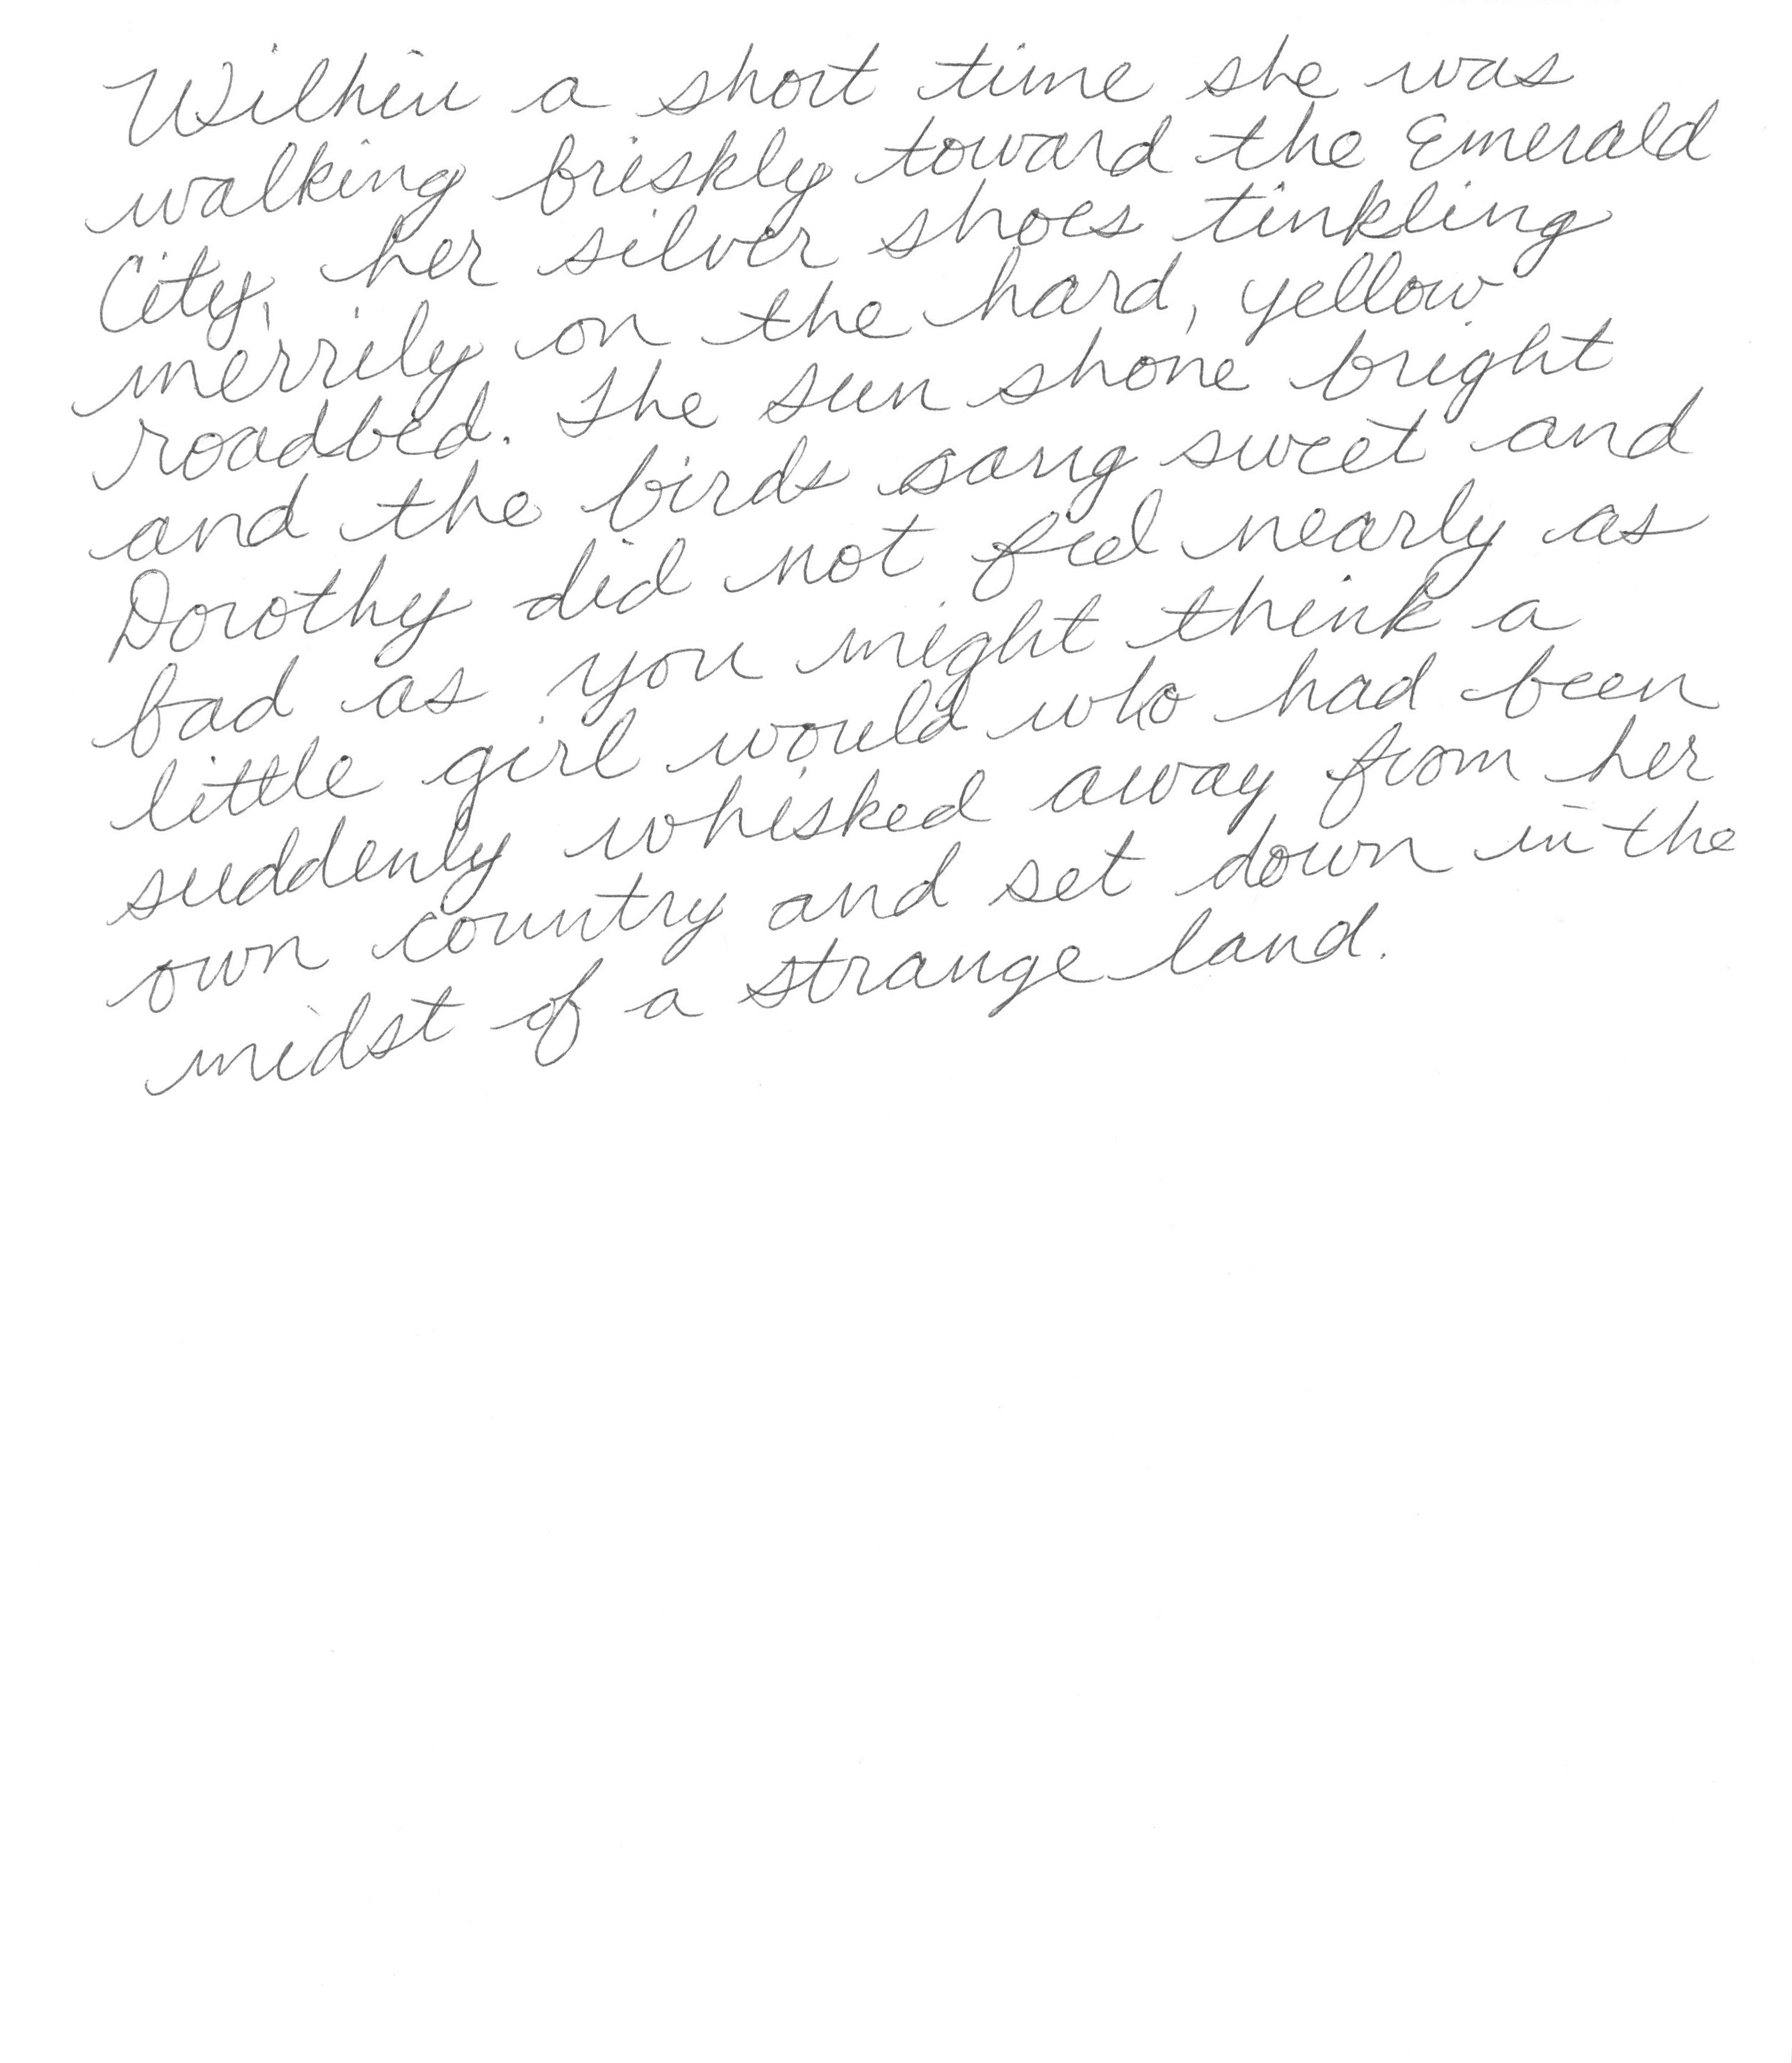 Within a short time she was
walking briskly toward the Emerald
City, her silver shoes tinkling
merrily on the hard, yellow
roadbed. The sun shone bright
and the birds sang sweet and
Dorothy did not feel nearly as
bad as you might think a
little girl would who had been
suddenly whisked away from her
own country and set down in the
midst of a strange land.